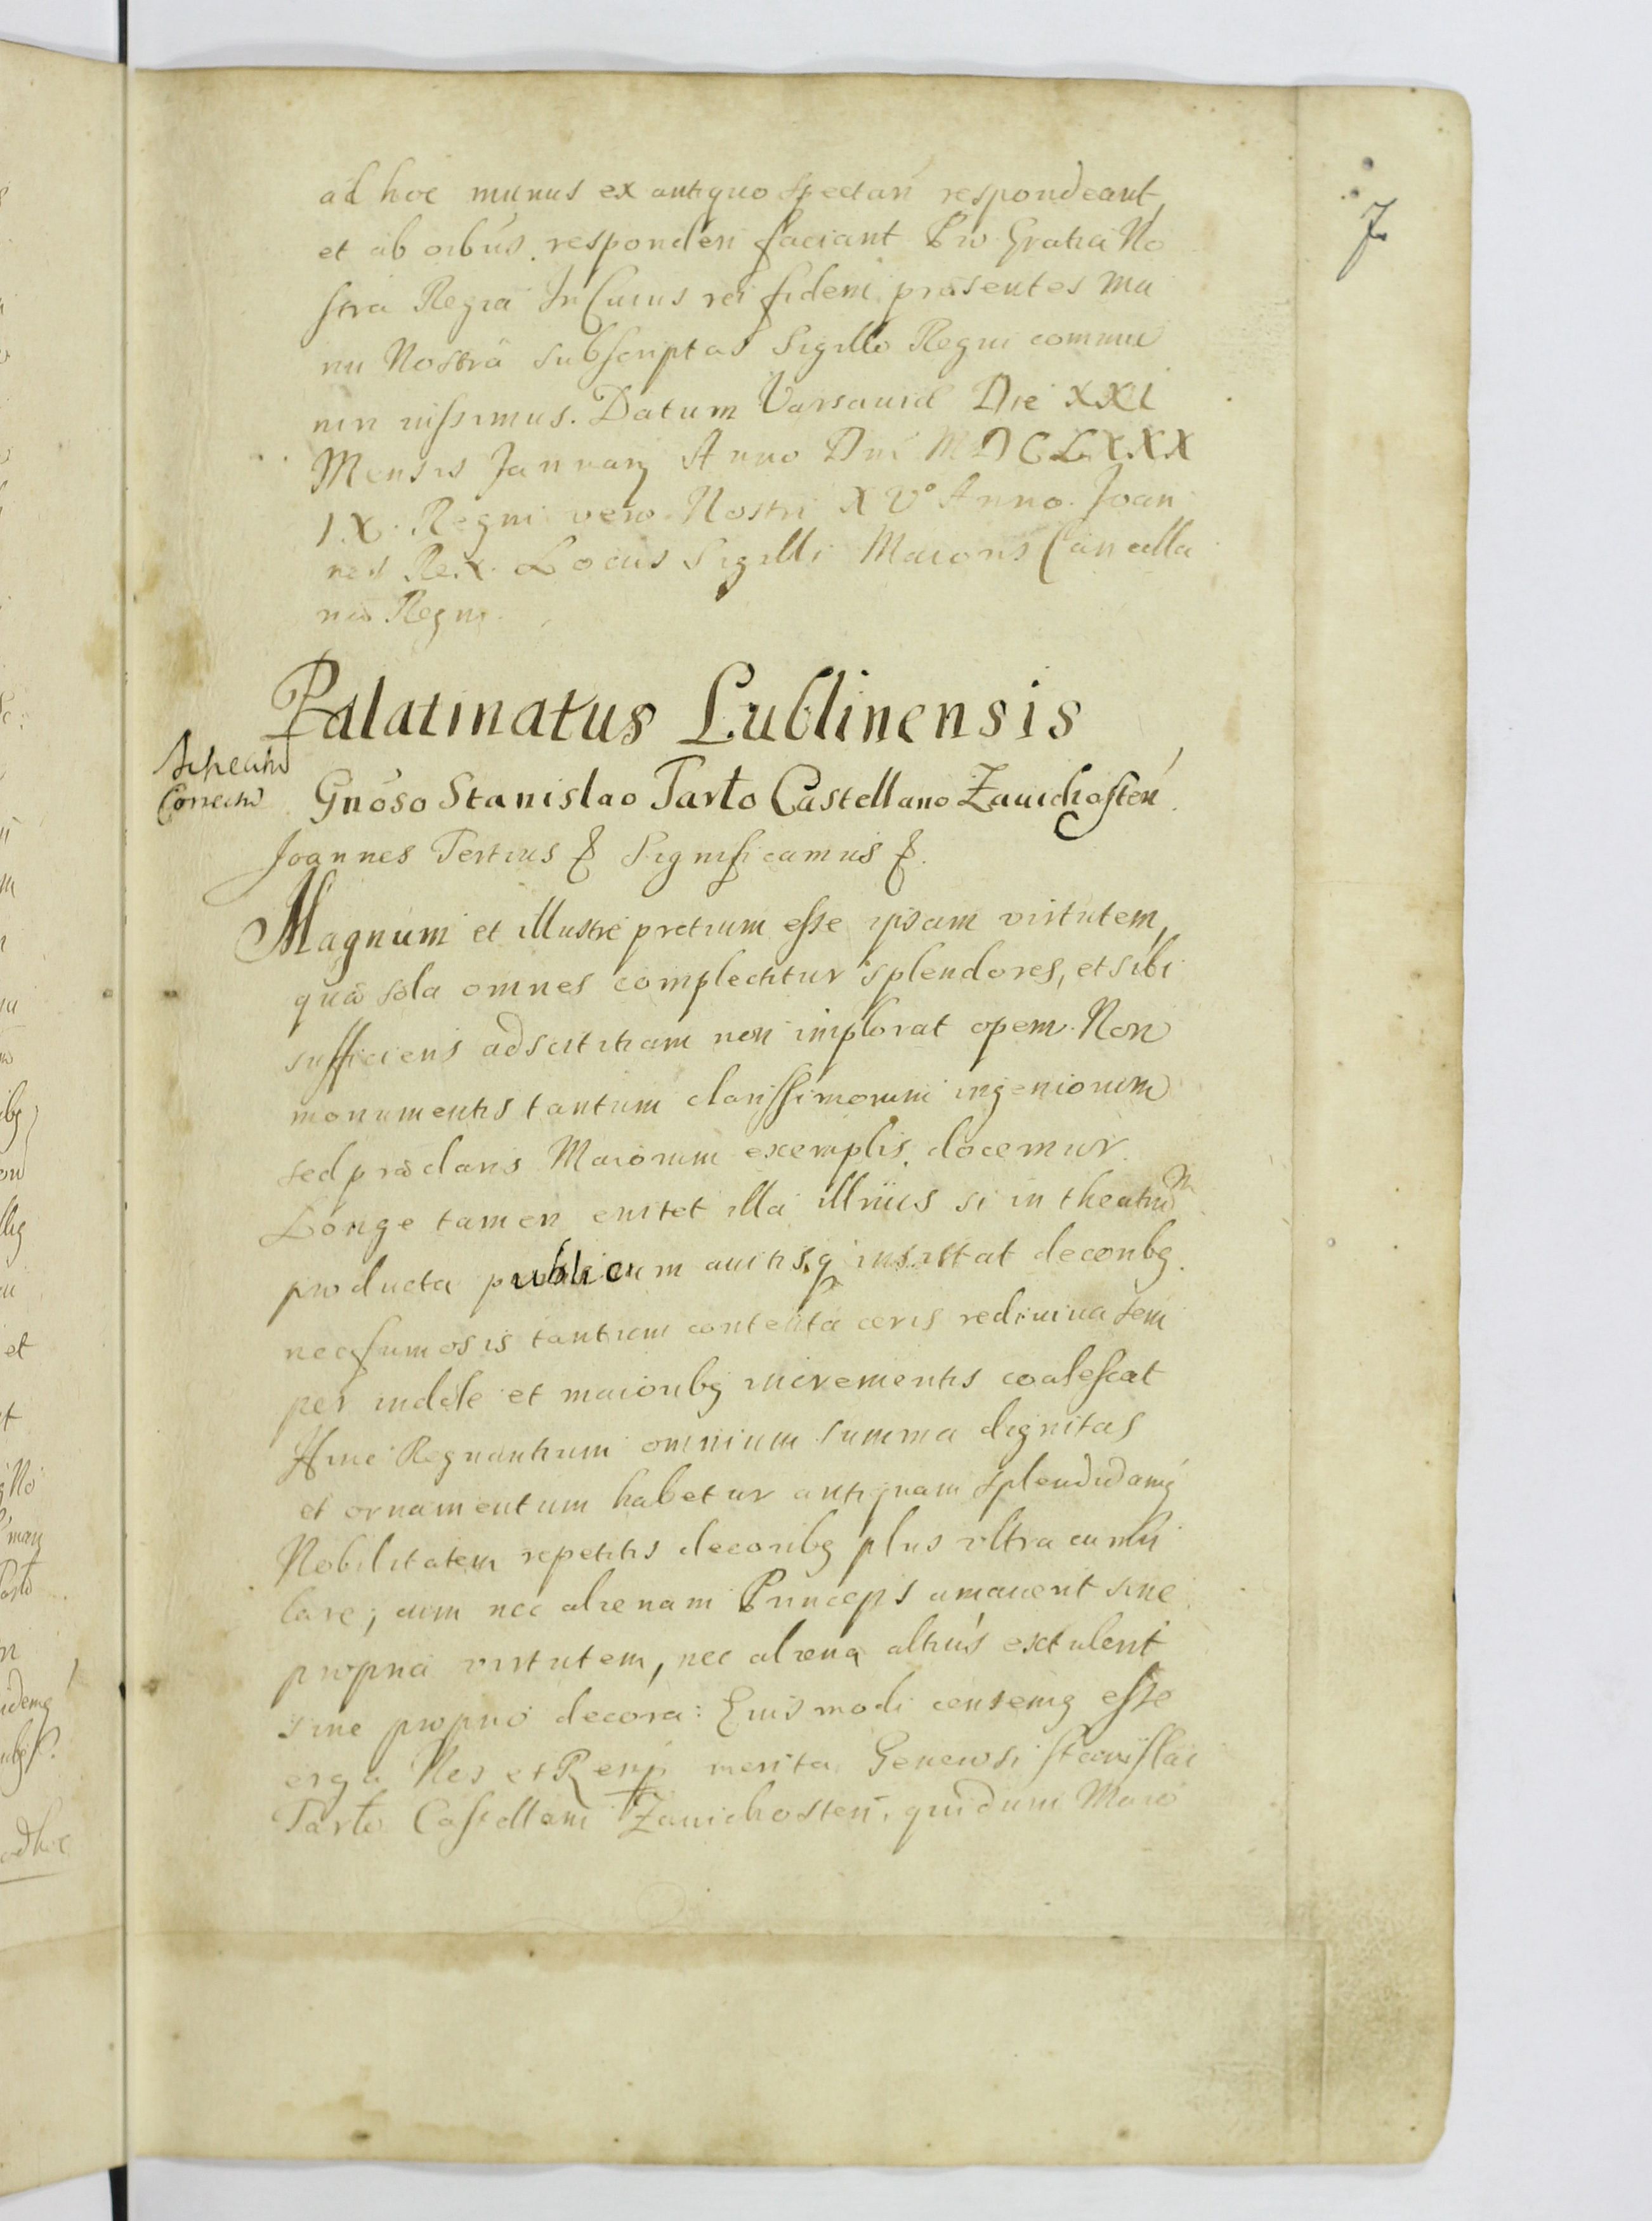 7
ad hoc munus ex antiquo spectañ respondeant,
et ab oibus responderi faciant Pro Gratia No
stra Regia In Cuius rei fidem præsentes Ma
nu Nostra subscriptas Sigillo Regni commu
niri iussimus. Datum Varsaviæ Die XXI
Mensis Januarij Anno Dni MDCLXXX
IX. Regni vero Nostri XVº Anno. Joan
nes Rex. Locus Sigilli Maioris Cancella
riæ Regni.
Palatinatus Lublinensis
Correcta Gnoso Stanislao Tarło Castellano Zauichosteń.
Joannes Tertius & Significamus &.
Magnum et illustre pretium esse ipsam virtutem,
quæ sola omnes complectitur splendores, et sibi
sufficiens adscititiam non implorat opem. Non
monumentis tantum clarissimorum ingeniorum
sed præclaris Maiorum exemplis docemur.
Longe tamen enitet illa illriús si in theatrum
producta publicum auitisq insistat decoribg.
nec fumosis tantum contenta ceris rediuiua sem
per indole et maioribg incrementis coalescat
Hinc Regnantium omnium summa dignitas
et ornamentum habetur antiquam splendidamq
Nobilitatem repetitis decoribg plus vltra cumu
lare; cum nec alienam Princeps amauerit sine
propria virtutem, nec aliena altiús extulerit
sine proprio decora: Eiusmodi censemg esse
erga Nos et Remp merita Generosi Stanislai
Tarło Castellani Zauichosteń, qui dum Maio